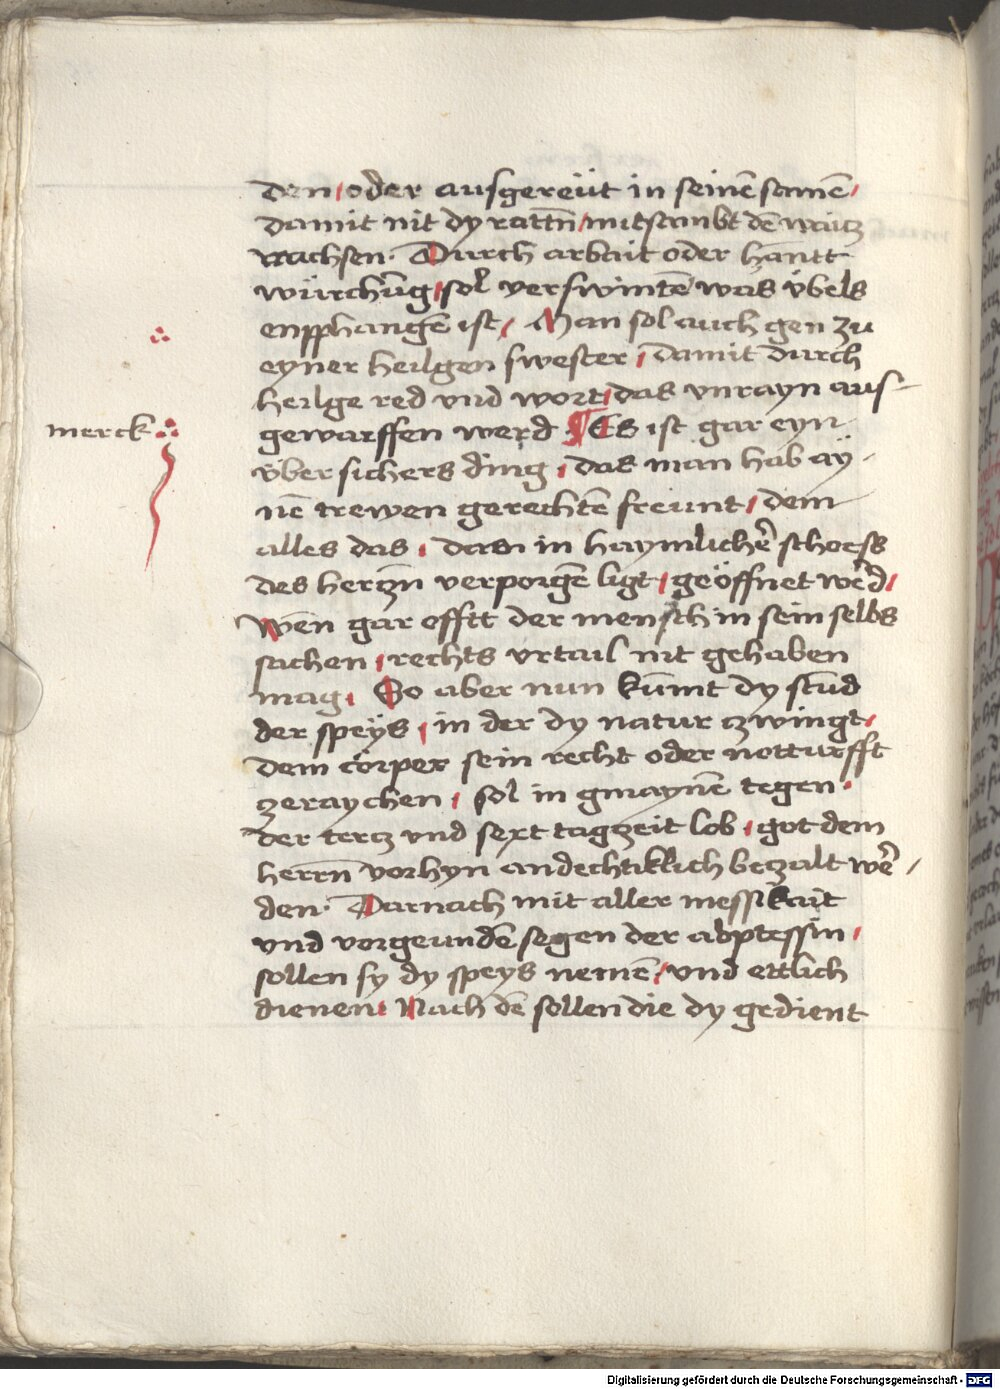 den / oder ausgereüt in seinē samē /
damit nit dy rattñ / mitsambt dē waicz
wachsen · Durch arbait oder hantt
würchūg / sol verswintē was v̈bels
enpphangē ist / Man sol auch gen zu
eyner heilgen swester / damit durch
heilge red vnd wort / das vnrayn aus-
merck gewarffen werd · ¶ Es ist gar eyn
v̈ber sichers ding / das man hab aÿ-
nē trewen gerechtē freunt / dem
alles das / das in haymlichē schoess
des herczñ verporgē ligt / geöffnet wēd /
wēn gar offtt der mensch in sein selbs
sachen / rechts vrtail nit gehaben
mag / So aber nun kūmt dy stūd
der speÿs / in der dy natur zwingt /
dem cörper sein recht oder notturfft
zeraychen / sol in gmaynē tegen ·
der tercz vnd sext tagzeit lob / got dem
herrñ vorhyn andechtiklich bezalt wē-
den · Darnach mit aller messikait
vnd vorgeundē segen der abptessin /
sollen sy dy speys nemē / vnd ettlich
dienen / Nach dē sollen die dy gedient
Digitalisierung gefördert durch die Deutsche Forschungsgemeinschaft - DFG